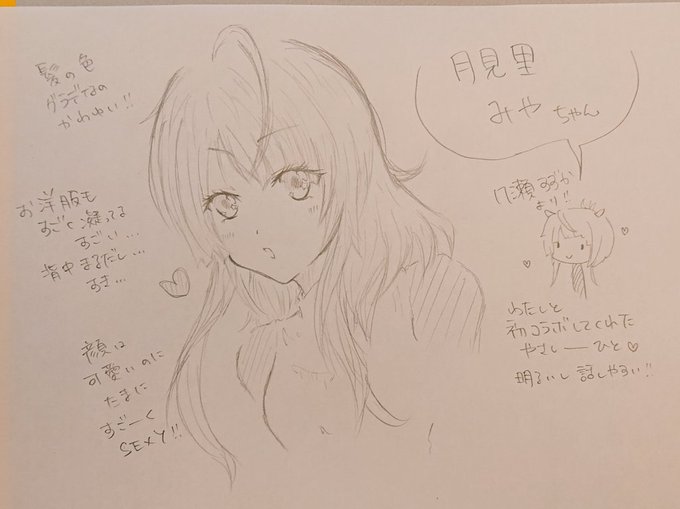 髪の色
グラデなの
かわゆい!!
お洋服も
すごく凝ってる
すごい...
背中まるだし...
すき...
顔は
可愛いのに
たまに
すごーく
SEXY!!
月見里
みやちゃん
瀬すずか
より!!
わたしと
初コラボしてくれた
やさしーひと♡
明るいし話しやすい!!